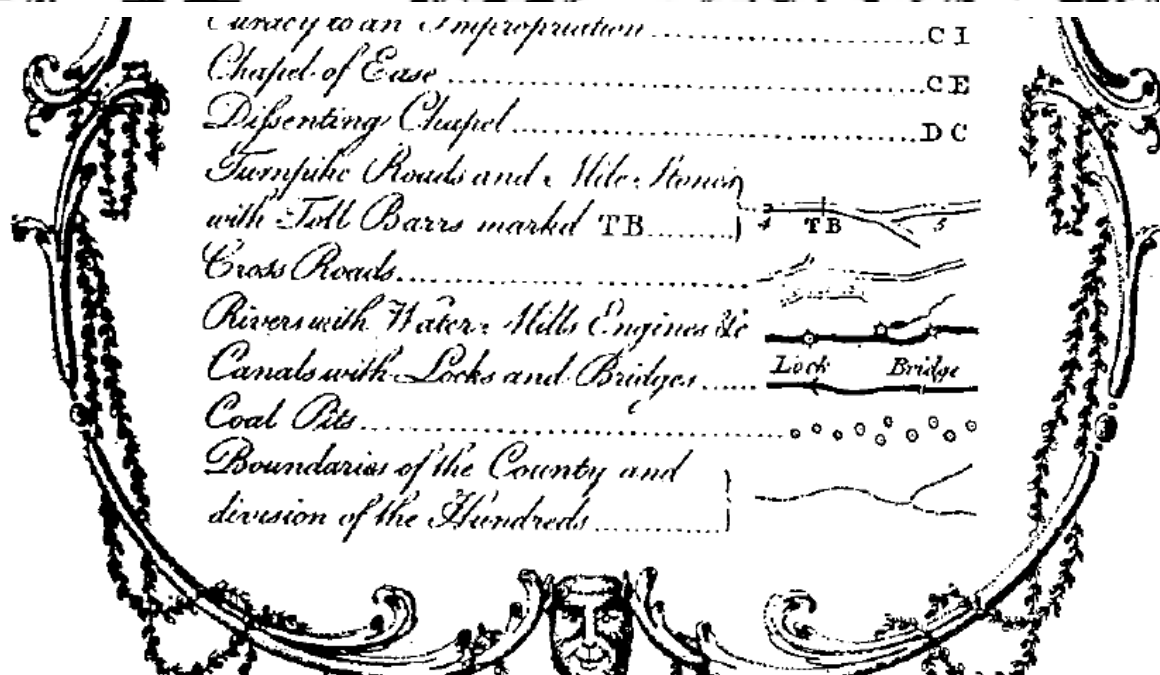 Curacy to an Impropriation CI
Chapel of Ease CE
Dissenting Chapel DC
Turnpike Roads and Mile Stones
with Toll Barrs markd TB 4 TB 5
Cross Roads
Rivers with Water Mills Engines &c
Canals with Locks and Bridges Lock Bridge
Coal Pits
Boundaries of the County and
division of the Hundreds